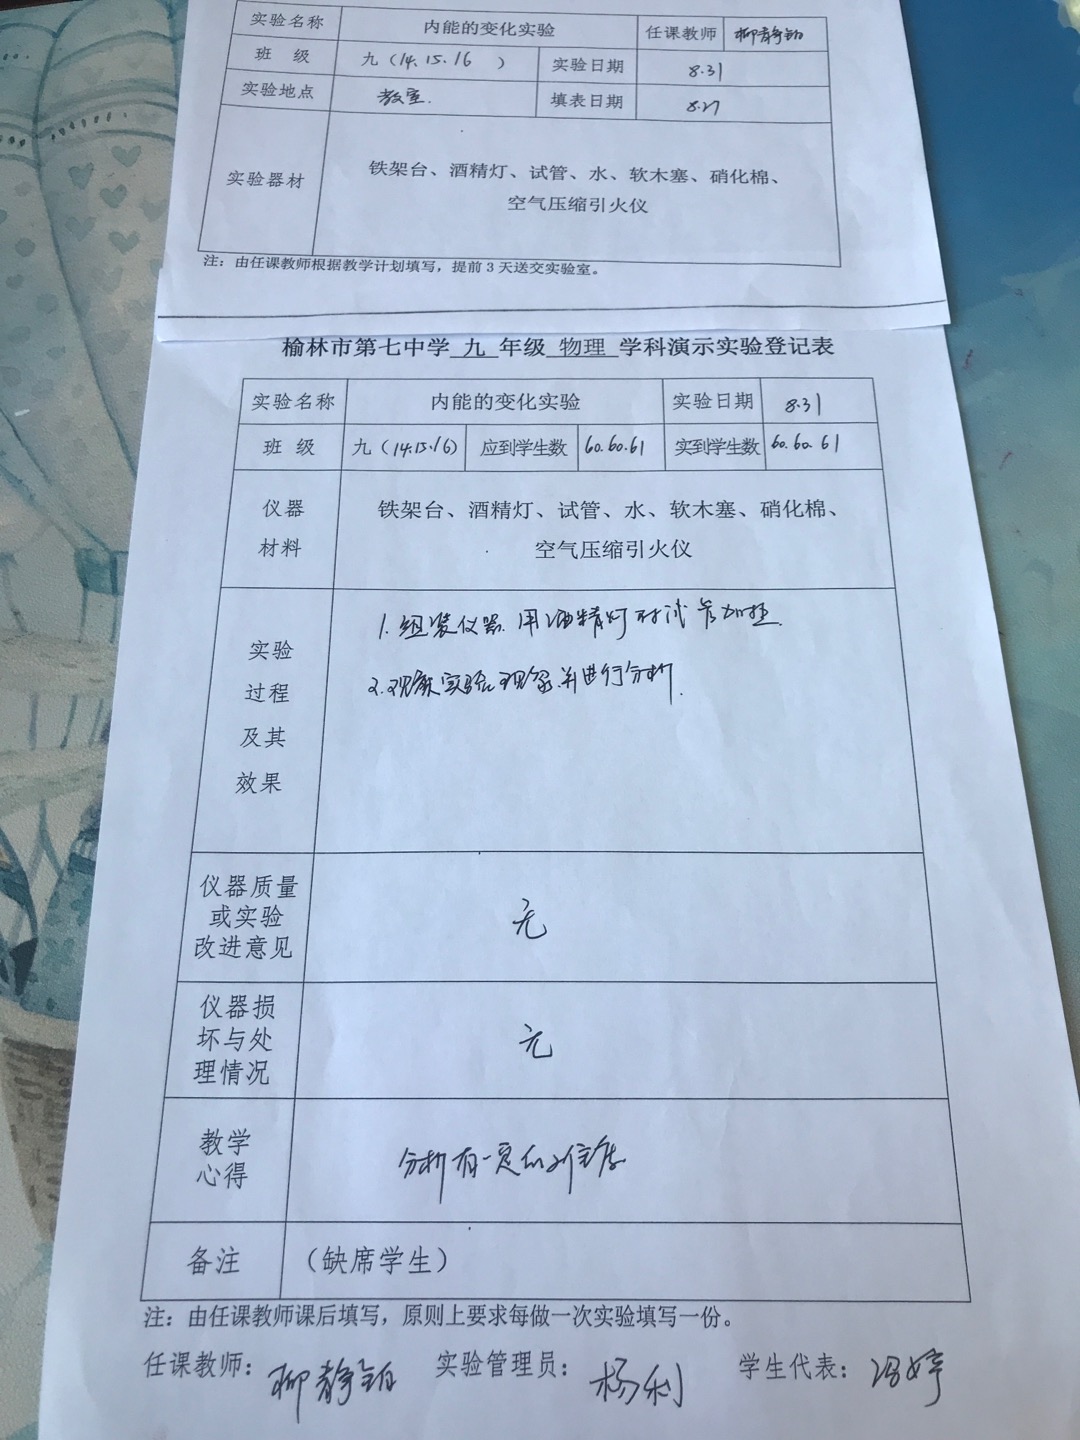 实验名称 内能的变化实验 任课教师 柳静
班 级 九（14.15.16 ） 实验日期 8.31
实验地点 教室. 填表日期 8.27
实验器材 铁架台、酒精灯、试管、水、软木塞、硝化棉、
空气压缩引火仪
注：由任课教师根据教学计划填写，提前 3 天送交实验室。
榆林市第七中学 九 年级 物理 学科演示实验登记表
实验名称 内能的变化实验 实验日期 8.31
班 级 九（14.15.16） 应到学生数 60.60.61 实到学生数 60.60.61
仪器
材料
铁架台、酒精灯、试管、水、软木塞、硝化棉、
空气压缩引火仪
实验
过程
及其
效果
1.组装仪器.用酒精灯对试管加热.
2.观察实验现象.并进行分析.
仪器质量
或实验
改进意见
无
仪器损
坏与处
理情况
无
教学
心得
分析有一定的难度
备注 （缺席学生）
注：由任课教师课后填写，原则上要求每做一次实验填写一份。
任课教师：柳静 实验管理员：杨利 学生代表：冯婷